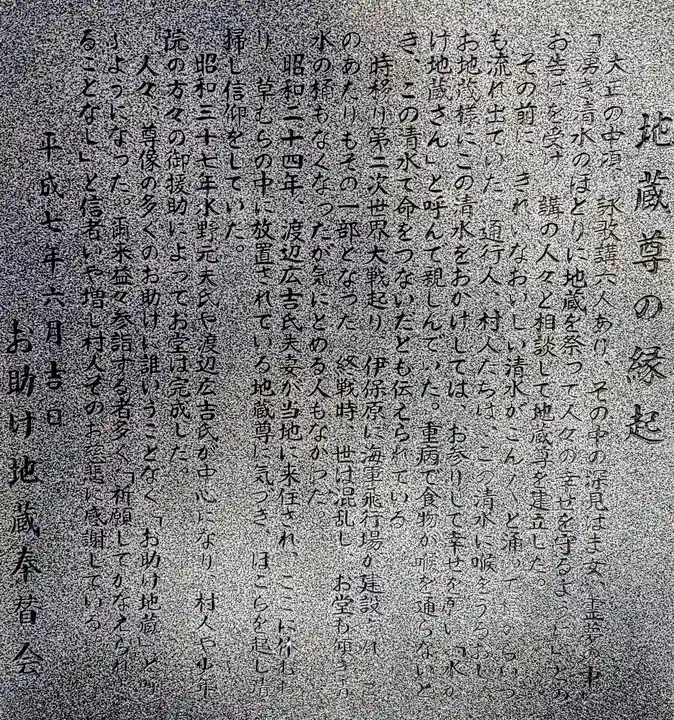 地蔵尊の縁起
大正の中頃、詠歌講六人あり、その中の深見はま女、霊夢の中
「湧き清水のほとりに地蔵を祭って人々の幸せを守るように」との
お告げを受け、講の人々と相談して地蔵尊を建立した。
その前に、きれいなおいしい清水がこんこんと涌
も流れ出ていた。通行人、村人たちは、この清水に喉をうるおし、
お地蔵様にこの清水をおかけしては、お参りして幸せを願い「水か
け地蔵さん」と呼んで親しんでいた。重病で食物が喉を通らないと
き、この清水で命をつないだとも伝えられている
時移り第二次世界大戦起り、伊保原に海軍飛行場が建設され、こ
のあたりもその一部となった。終戦時、世は混乱し、お堂も
水の桶もなくなったが気にとめる人もなかった。
昭和二十四年、渡辺広吉氏夫妻が当地に来住され、ここに
り、草むらの中に放置されている地蔵尊に気づき、ほこらを起し清
掃し信仰をしていた。
昭和三十七年水野元夫氏や渡辺広吉氏が中心になり、村人や少年
院の方々の御援助によってお堂は完成した。
人々、尊像の多くのお助けに誰いうことなく、「お助け地蔵」と
ようになった。爾来益々参詣する者多く「祈願してかなえられ
ることなし」と信者いや増し村人そのお慈悲に感謝している
平成七年六月吉日
お助け地蔵奉賛会